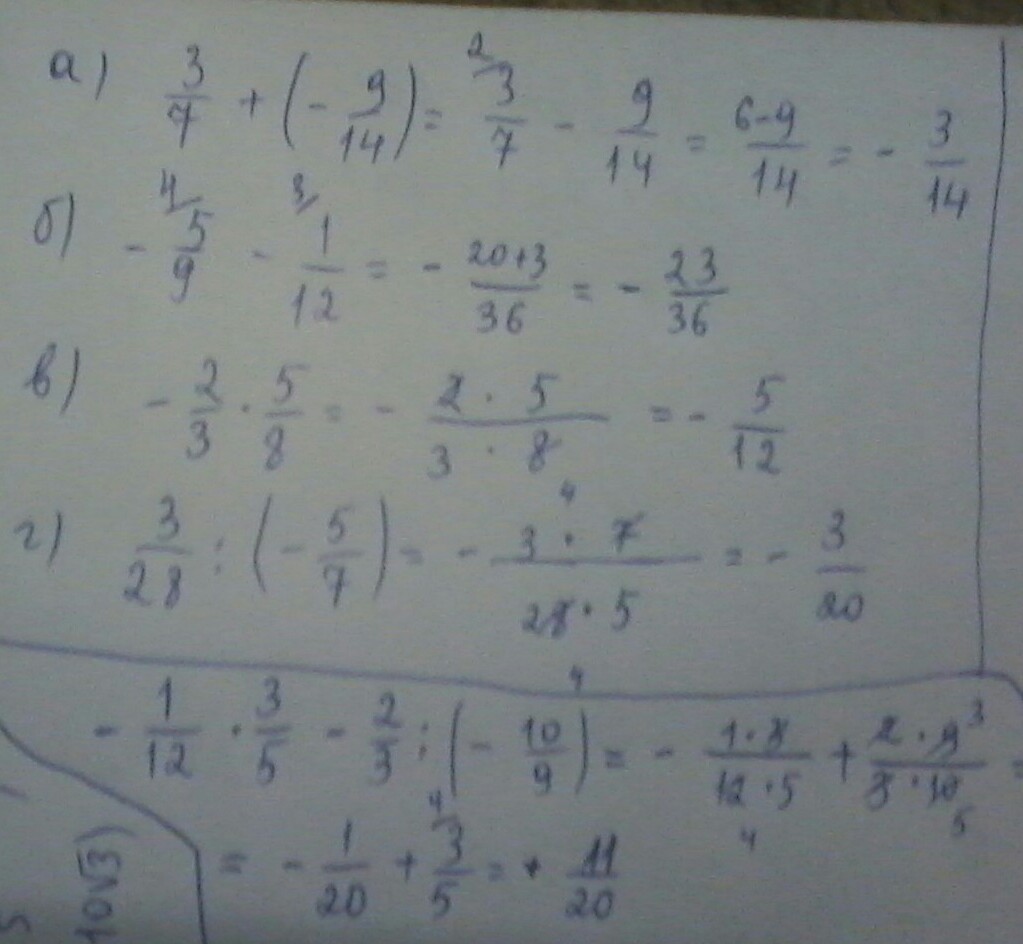 а) 3/7 + (- 9/14) = 2/ 3/7 - 9/14 = 6-9/14 = - 3/14
б) - 4/ 5/9 - 3/ 1/12 = - 20+3/36 = - 23/36
в) - 2/3 · 5/8 = - 2 · 5/3 · 8 = - 5/12
4
г) 3/28 : (- 5/7) = - 3 · 7/28 · 5 = - 3/20
4
- 1/12 · 3/5 - 2/3 : (- 10/9) = - 1 · 3/12 · 5 + 2 · 9/3 · 10 =
3
4 5
= - 1/20 + 4/ 3/5 = + 11/20
10√3)